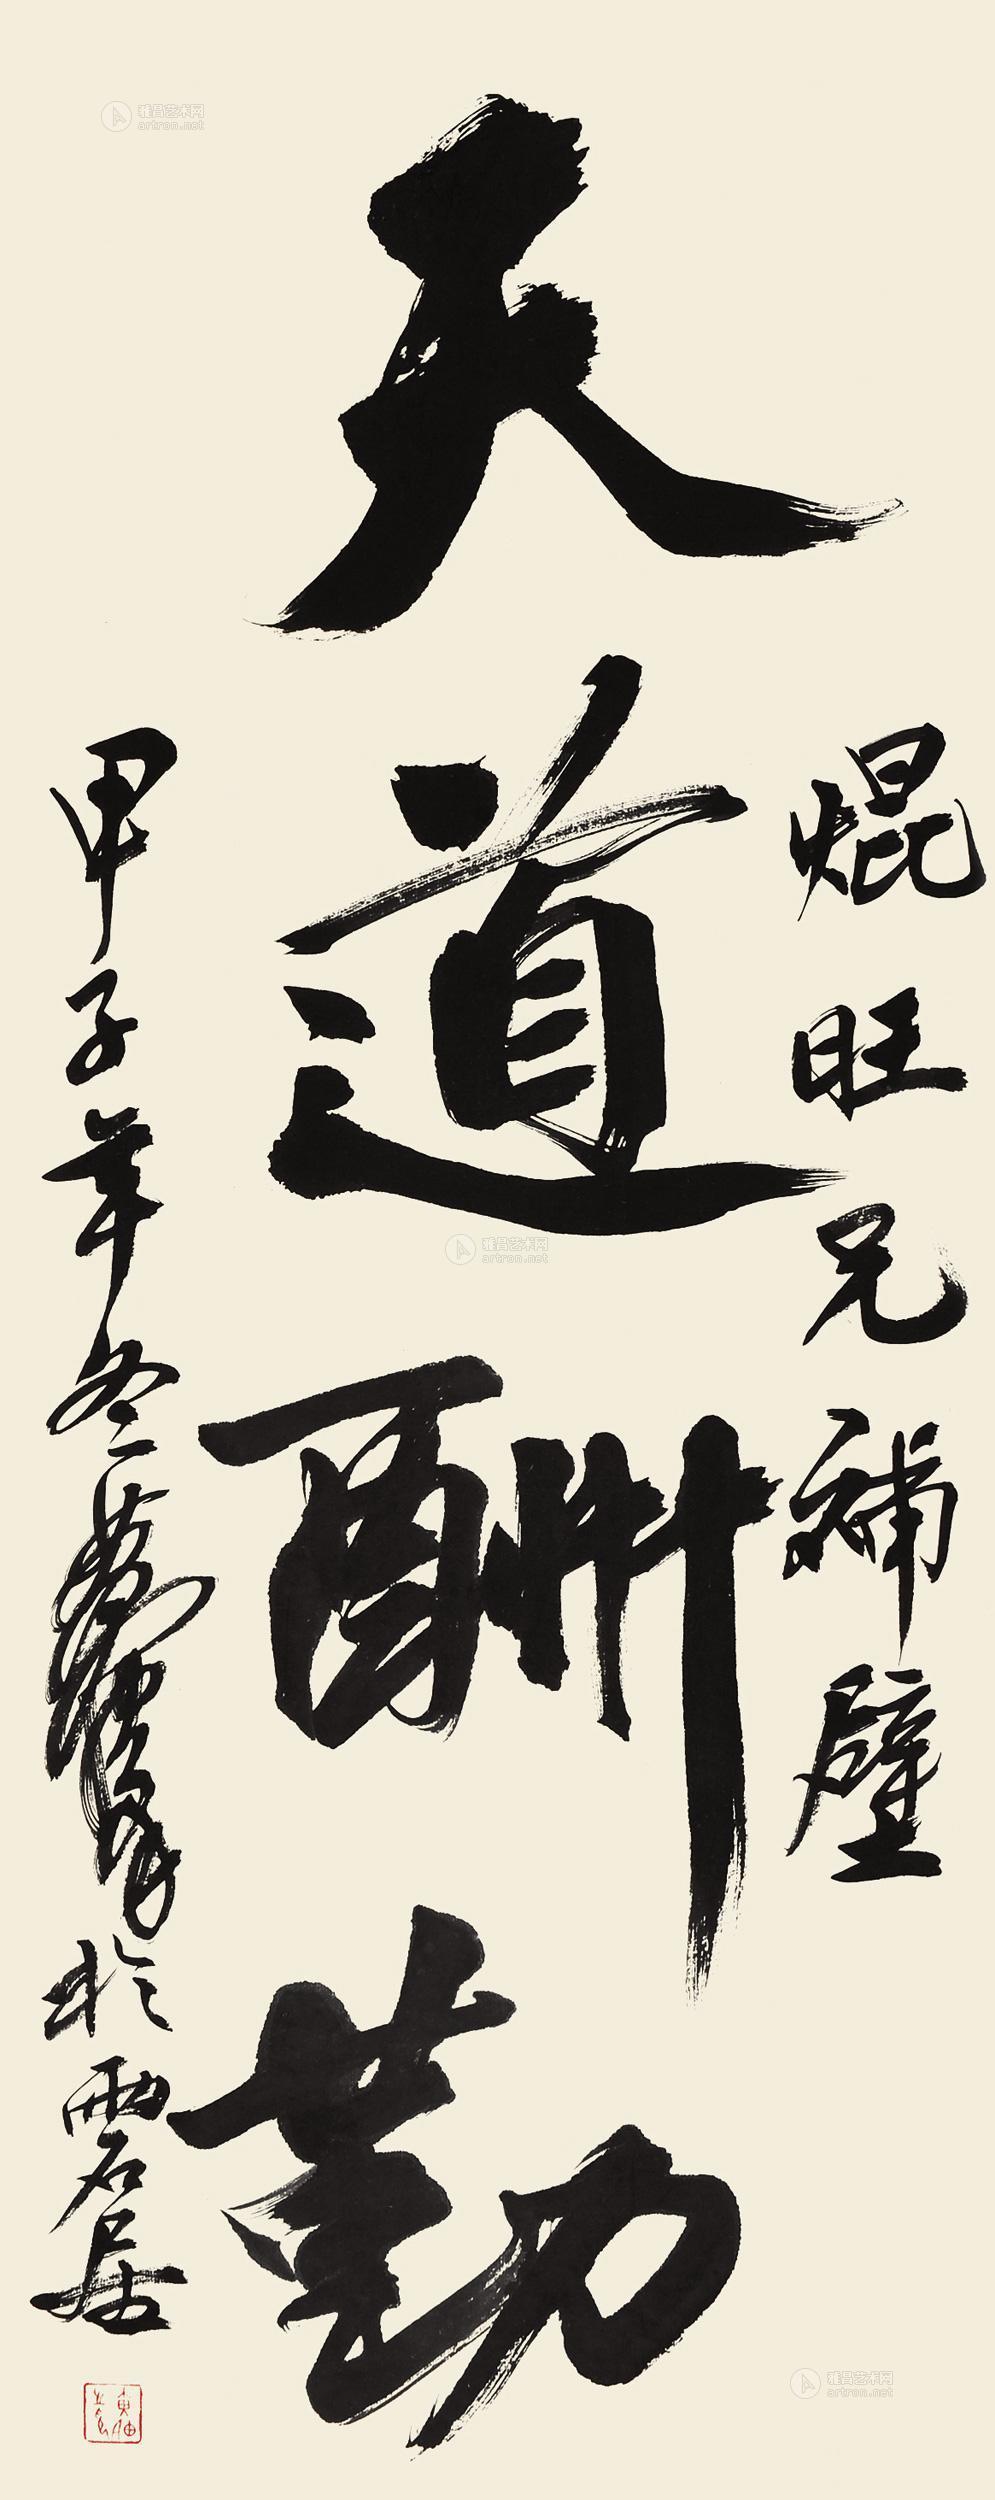 焜旺兄補壁
天道酬勤
甲子年冬 於 居
雅昌艺术网
artron.net
雅昌艺术网
artron.net
雅昌艺术网
artron.net